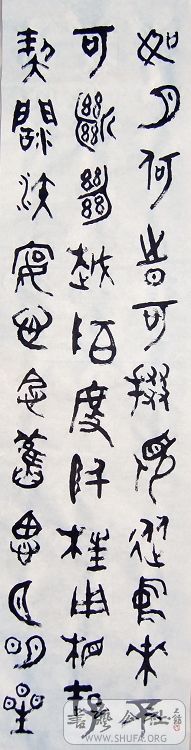 如月何時可掇憂從中來不
可斷絕越陌度阡枉用相存
契闊談宴心念舊恩月明星
WWW.SHUFA.ORG